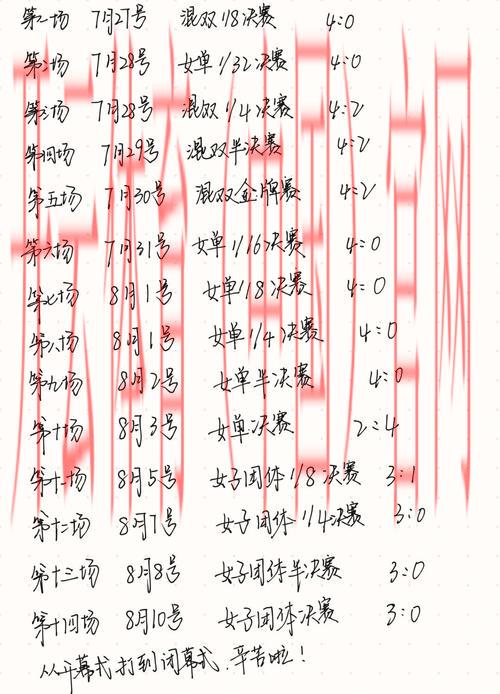 第一场 7月27号 混双1/8决赛 4:0
第二场 7月28号 女单1/32决赛 4:0
第三场 7月28号 混双1/4决赛 4:2
第四场 7月29号 混双半决赛 4:2
第五场 7月30号 混双金牌赛 4:2
第六场 7月31号 女单1/16决赛 4:0
第七场 8月1号 女单1/8决赛 4:0
第八场 8月1号 女单1/4决赛 4:0
第九场 8月2号 女单半决赛 4:0
第十场 8月3号 女单决赛 2:4
第十一场 8月5号 女子团体1/8决赛 3:1
第十二场 8月7号 女子团体1/4决赛 3:0
第十三场 8月8号 女子团体半决赛 3:0
第十四场 8月10号 女子团体决赛 3:0
从开幕式打到闭幕式,辛苦啦!